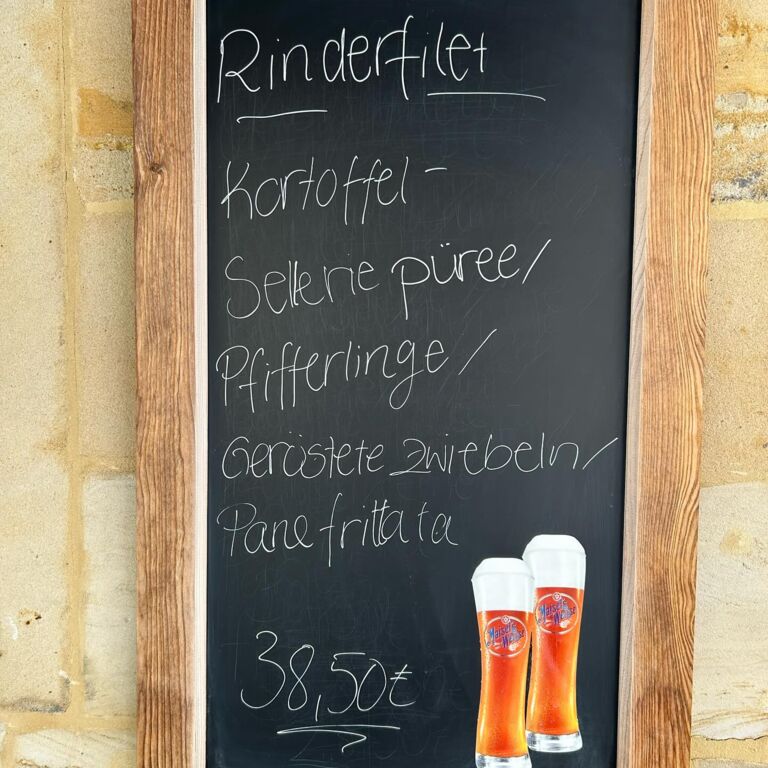 Rinderfilet
Kartoffel-
Sellerie püree/
Pfifferlinge/
Geröstete Zwiebeln/
Pane frittata
38,50€
Maisel's
Weisse
Maisel's
Weisse